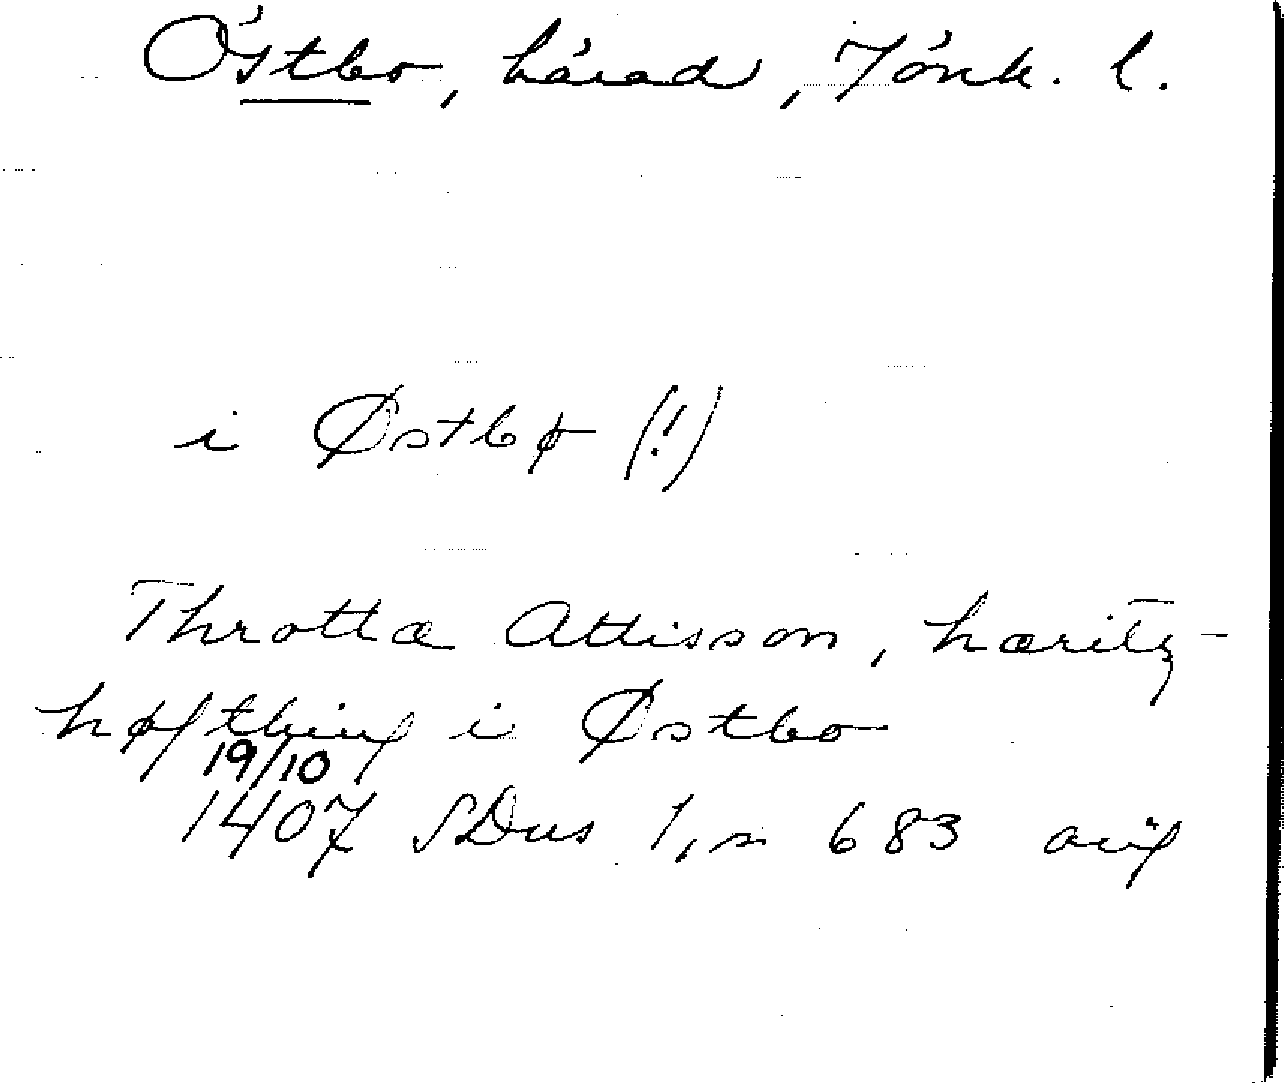 Östbo, härad, Jönk. l.
i Østbø (!)
Throtta Attisson, hæritz-
høfthing i Østbo
19/10
1407 SDns 1, s 683 orig